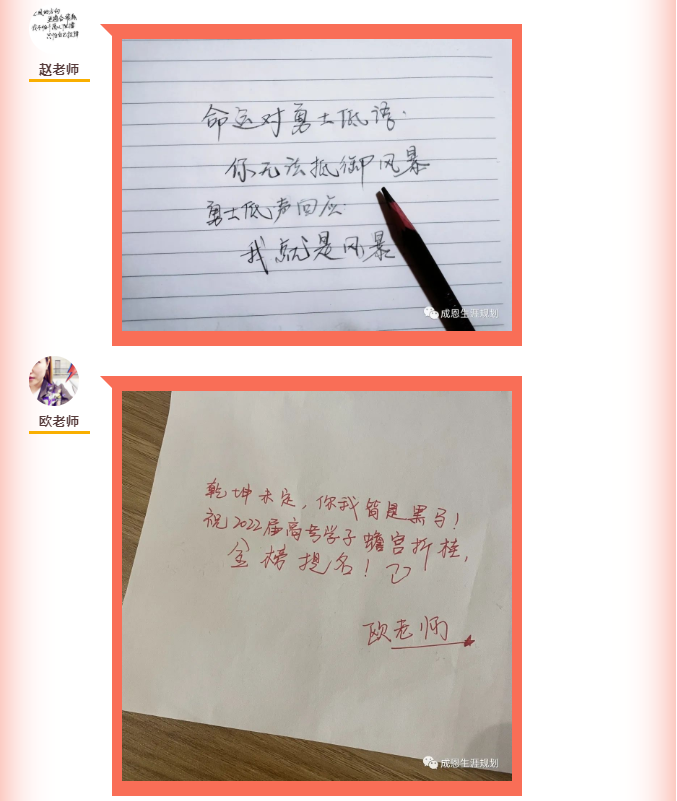 赵老师
命运对勇士低语.
你无法抵御风暴
勇士低声回应.
我就是风暴
成恩生涯规划
欧老师
乾坤未定，你我皆是黑马！
祝2022届高考学子蟾宫折桂，
金榜提名！
欧老师
成恩生涯规划